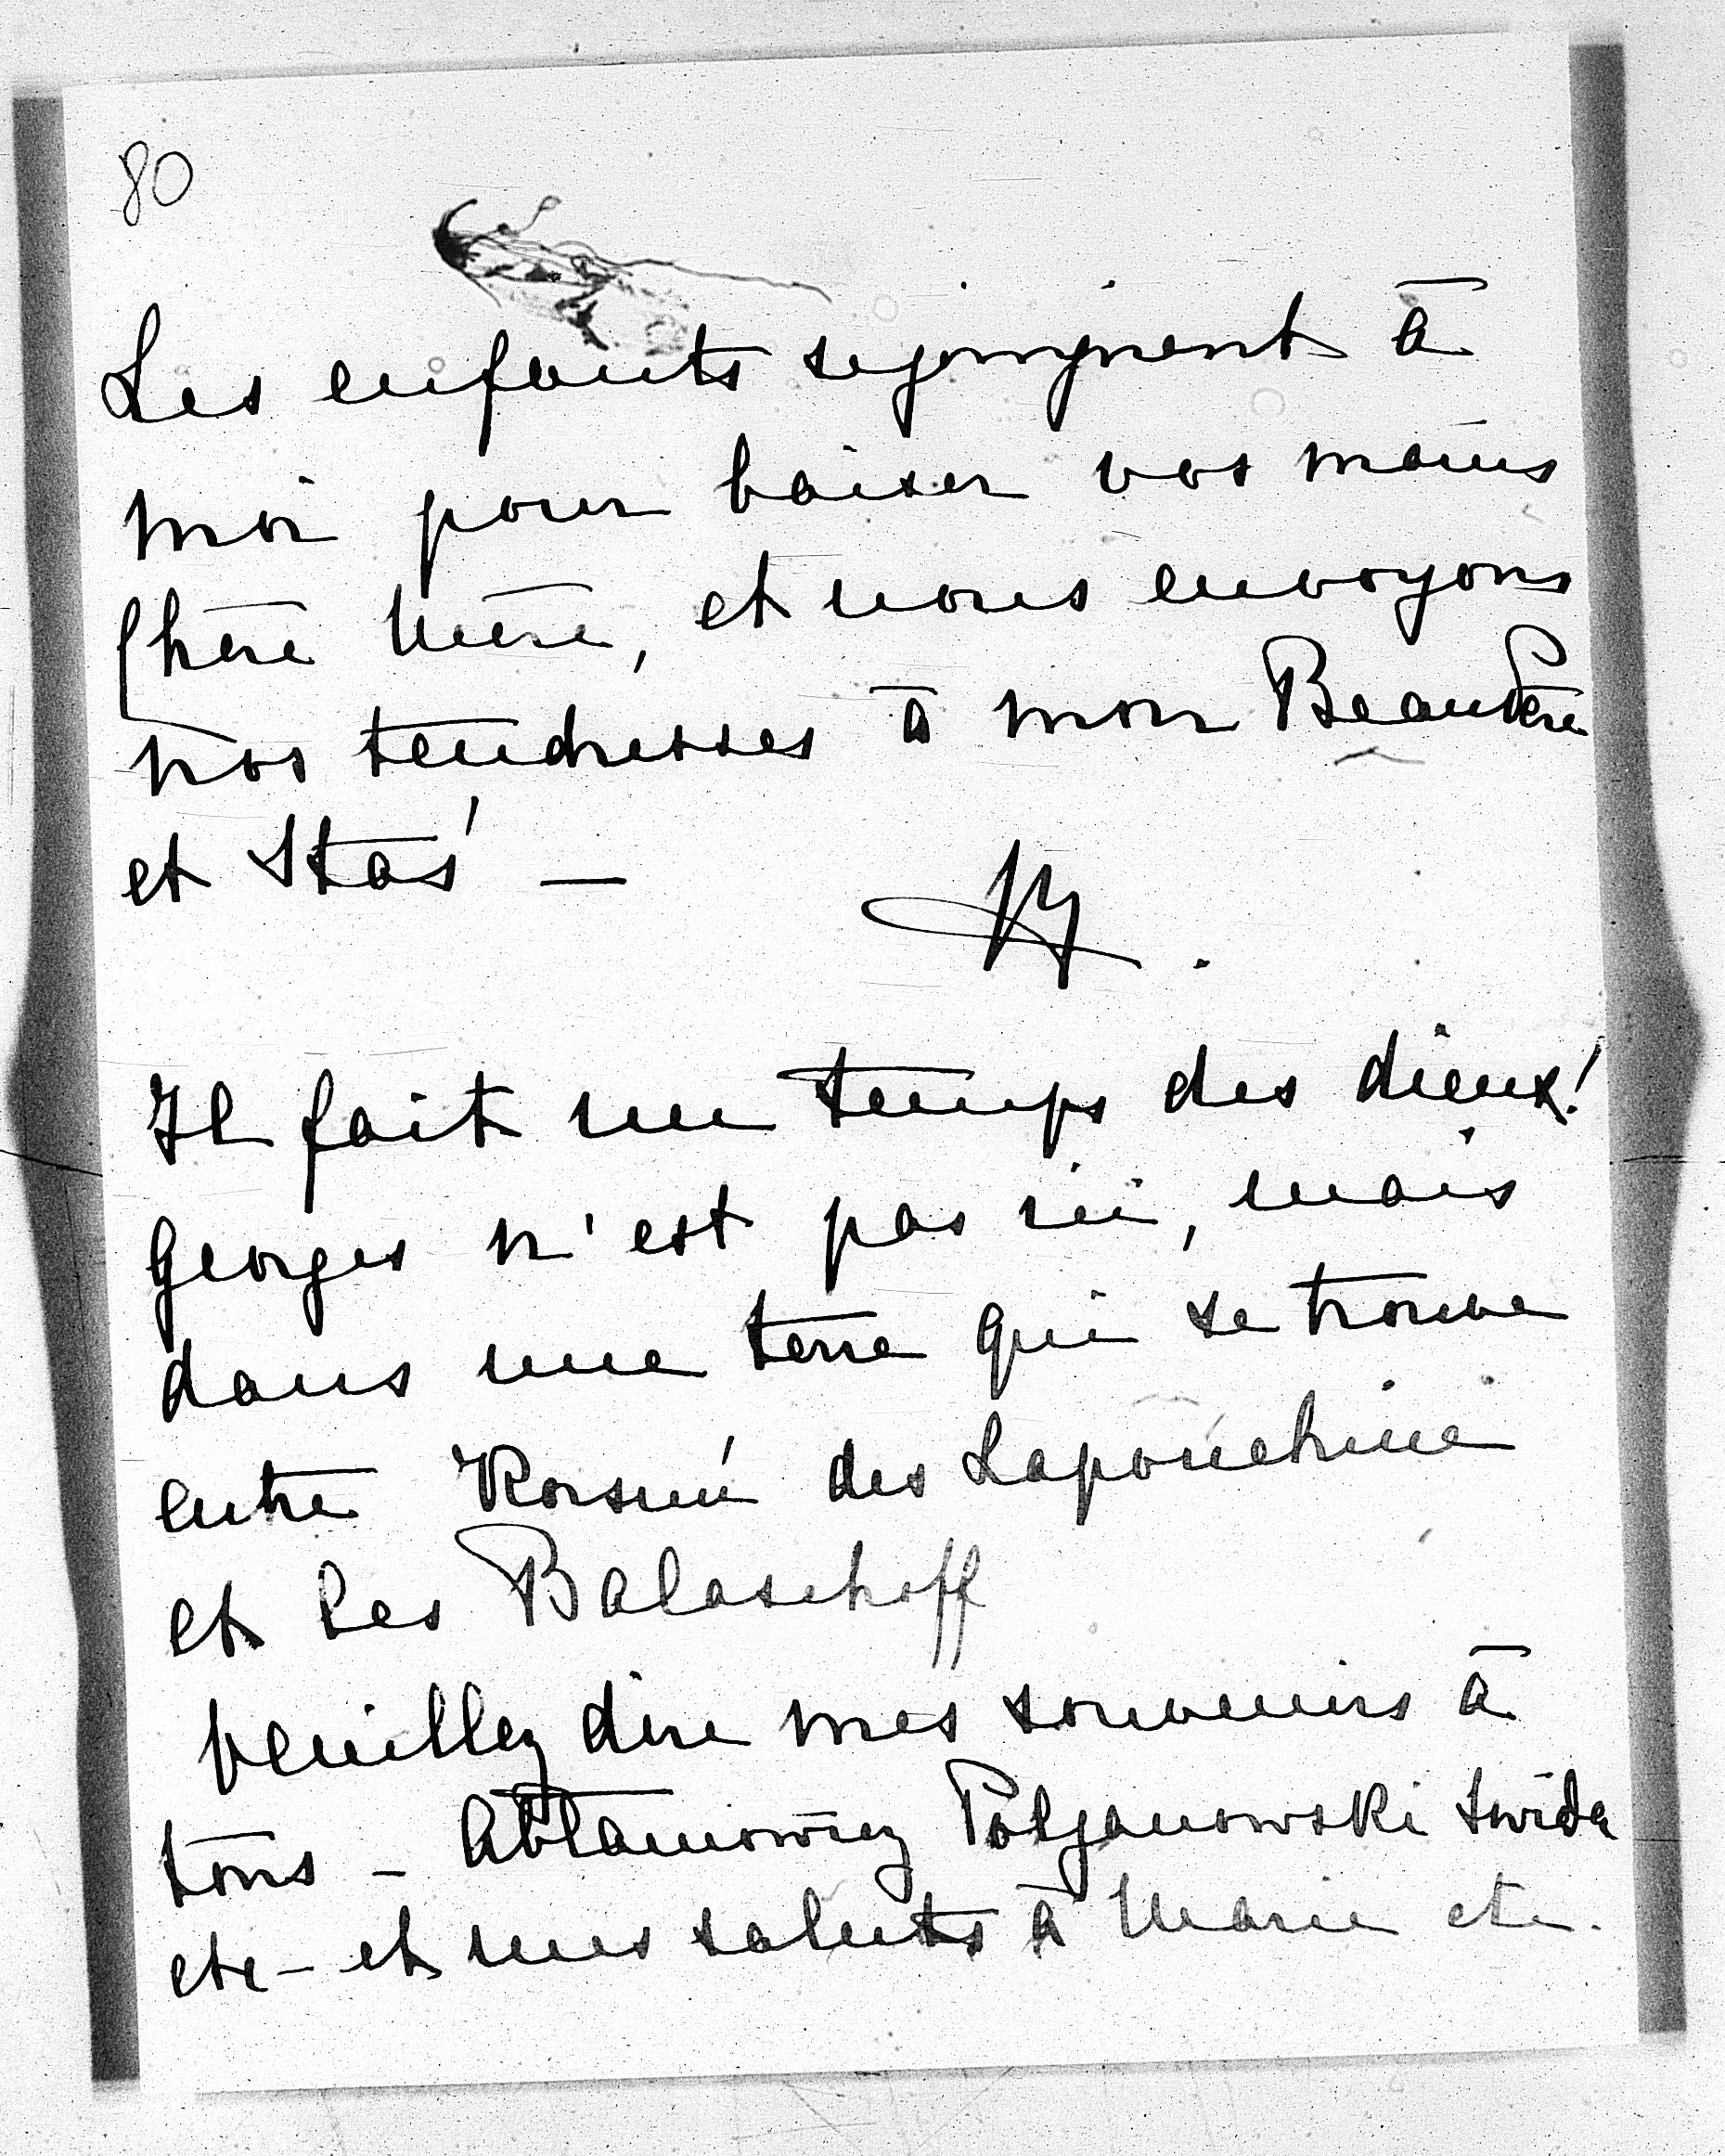 80
Les enfants se joignent à
moi pour baiser vos mains
Chère Mère, et nous envoyons
nos tendresses à mon BeauPère
et Staś —
Il fait un temps des dieux!
Georges n'est pas ici, mais
dans une terre qui se trouve
entre Korsuń des Lapouchine
et les Balascheff
Veuillez dire mes souvenirs à
tous - Abłamowicz Poljanowski Swida
etc - et mes saluts à Marie etc.